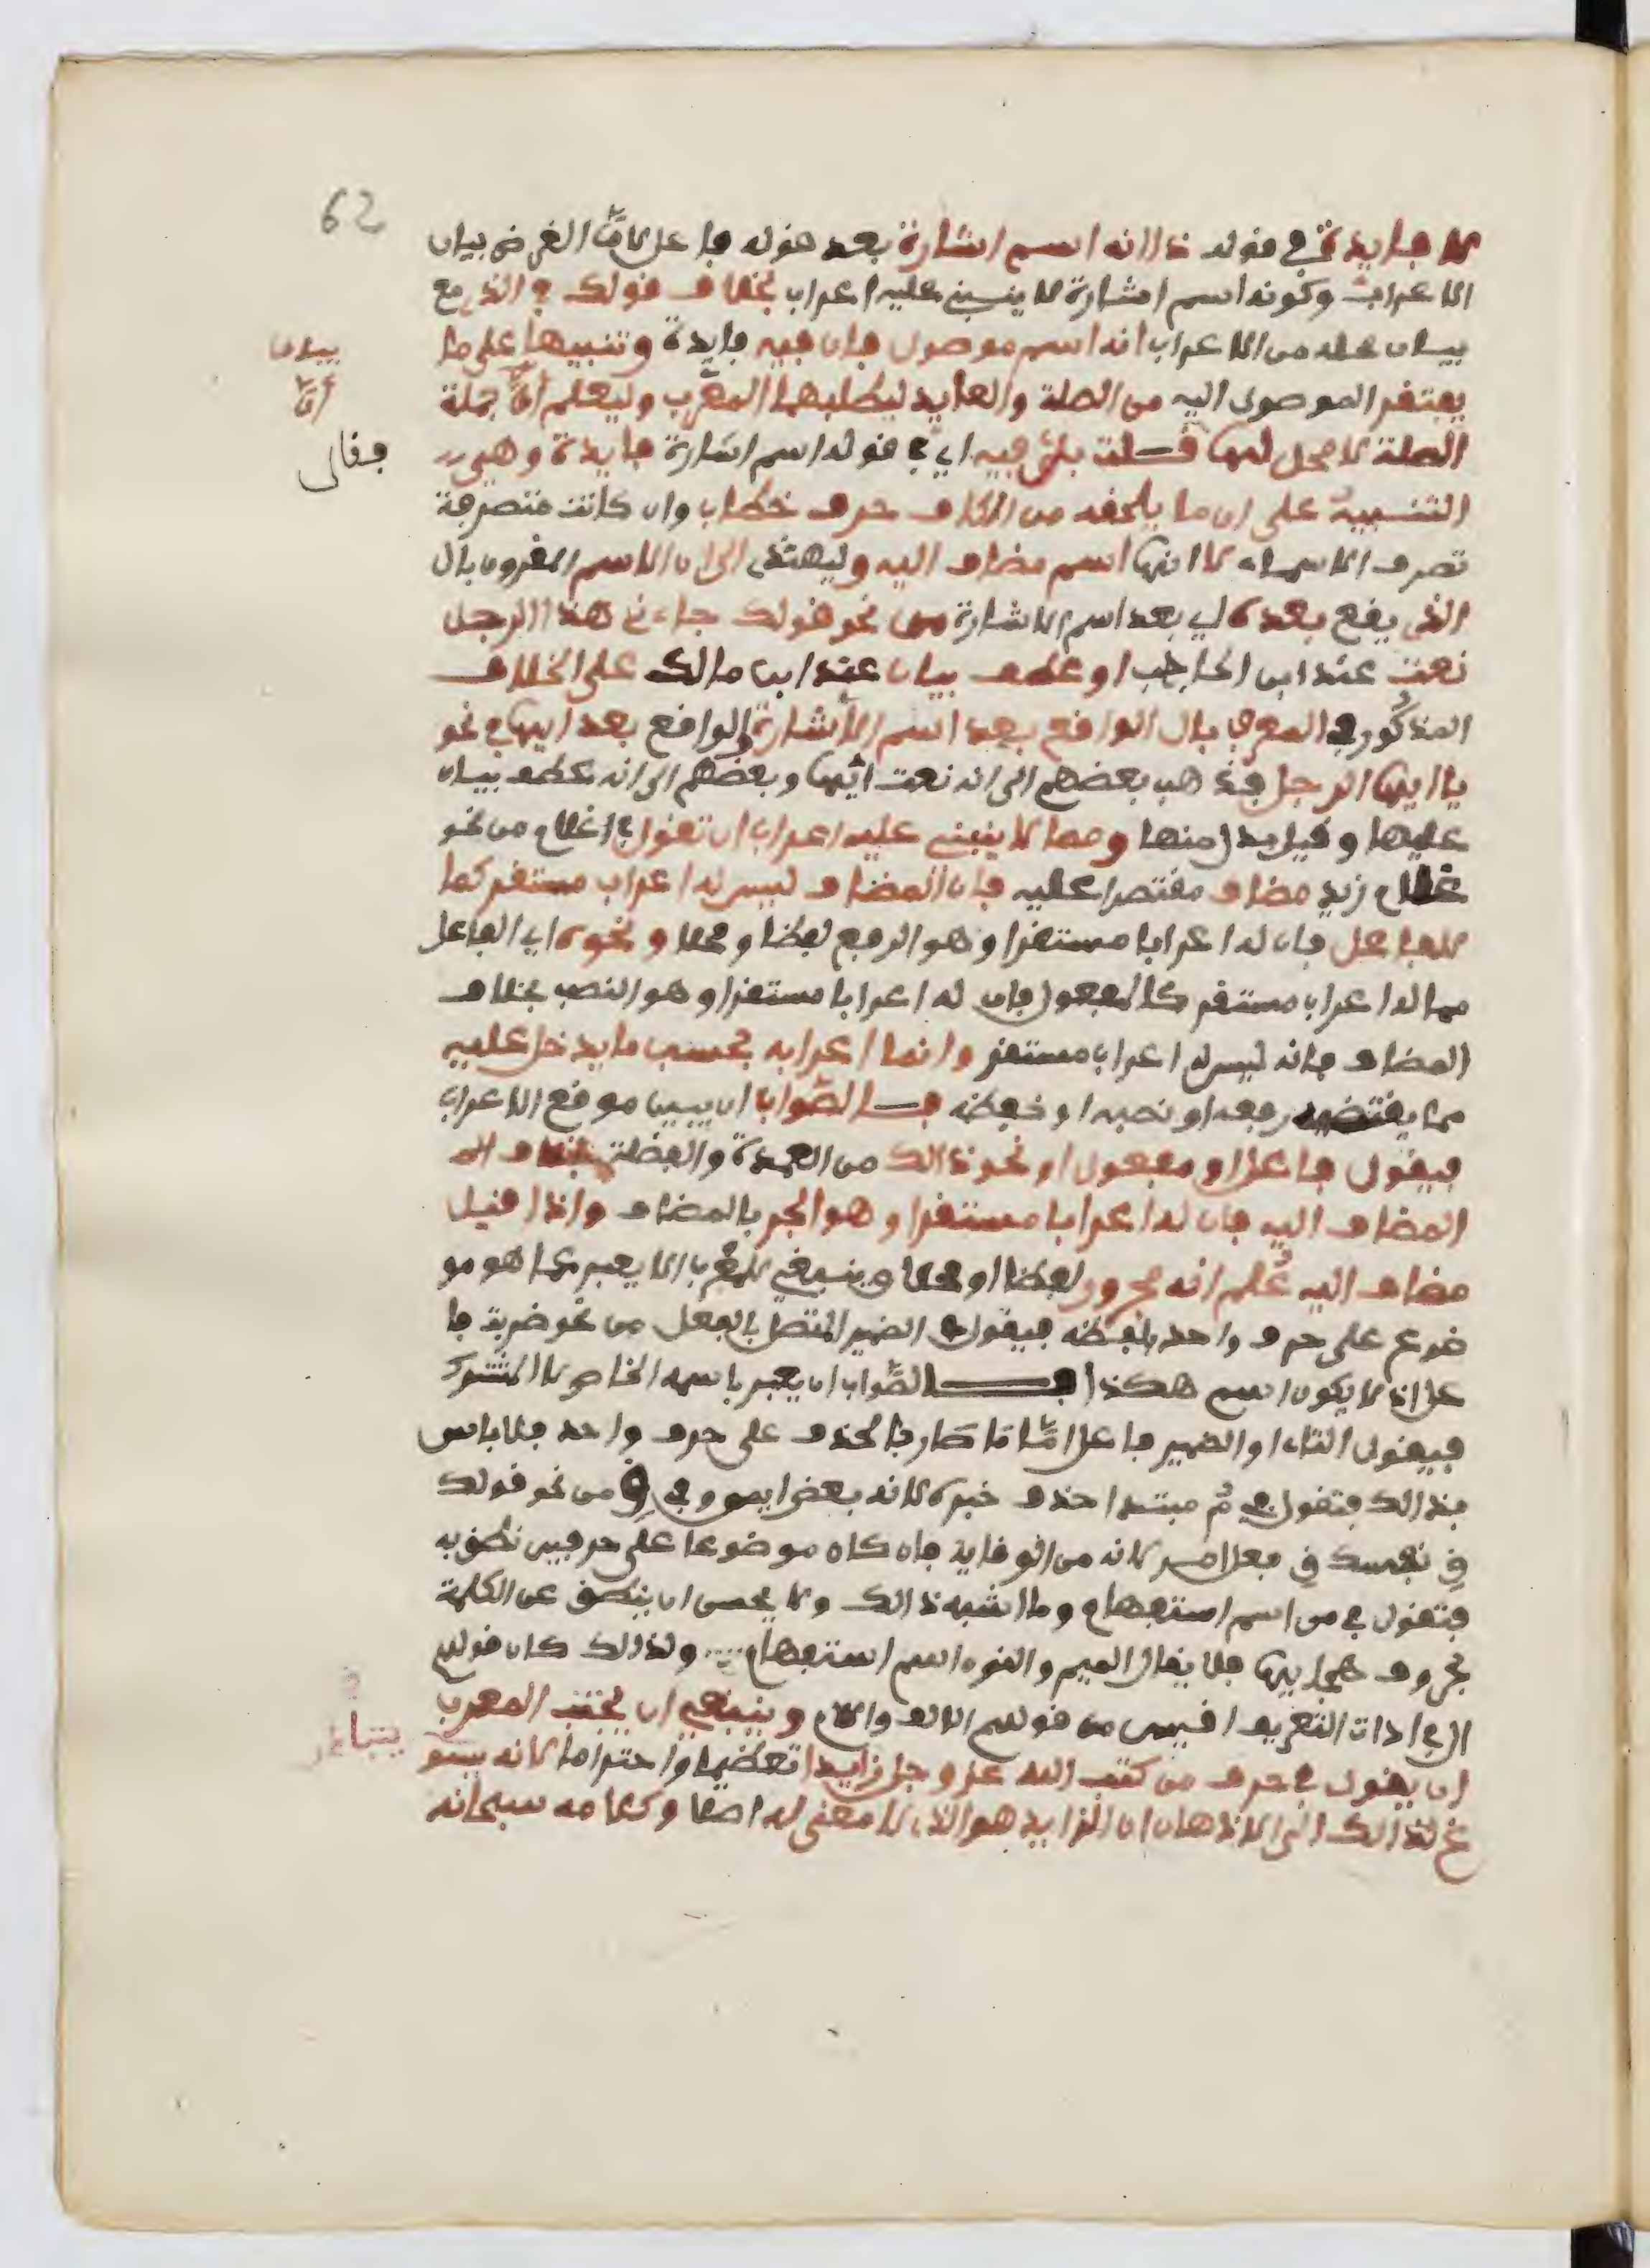 62
لا فايدة في قوله ذا انه اسم اشارة بعد قوله فاعل لانّ الغرض بيان
الاعراب وكونه اسم اشارة لا ينبني عليه اعراب بخلاف قولك في الذي مع
بيان محله من الاعراب انه اسم موصول فان فيه فايدة وتنبيها على ما
يفتقر الموصول اليه من الصلة والعايد ليطلبهما المعرب وليعلم انّ جملة
الصلة لا محل لها قلت بلى فيه اي في قوله اسم اشارة فايدة وهي
التنبيه على ان ما يلحقه من الكاف حرف خطاب وان كانت متصرفة
تصرف الاسماء لا انها اسم مضاف اليه وليهتدي الى ان الاسم المقرون بال
الذي يقع بعده اي بعد اسم الاشارة من نحو قولك جاءني هذا الرجل
نعت عند ابن الحاجب او عطف بيان عند ابن مالك على الخلاف
المذكور في المعرف بال الواقع بعد اسم الاشارة والواقع بعد ايها في نحو
يا ايها الرجل فذهب بعضهم الى انه نعت ايها وبعضهم الى انه عطف بيان
عليها وقيل بدل منها ومما لا ينبني عليه اعراب ان تقول في غلام من نحو
غلام زيد مضاف مقتصرا عليه فان المضاف ليس له اعراب مستقر كما
للفاعل فان له اعرابا مستقرا وهو الرفع لفظا ومحلا ونحوه اي الفاعل
مما له اعراب مستقر كالمفعول فان له اعرابا مستقرا وهو النصب بخلاف
المضاف فانه ليس له اعراب مستقر وانما اعرابه بحسب ما يدخل عليه
مما يقتضي رفعه او نصبه او خفظه فالصواب ان يبين موقع الاعراب
فيقول فاعل او مفعول او نحو ذالك من العمدة والفضلة بخلاف
المضاف اليه فان له اعرابا مستقرا وهو الجر بالمضاف واذا قيل
مضاف اليه عُلم انه مجرور لفظا او محلا وينبغي للمعرب الا يعبر عما هو مو
ضوع على حرف واحد بلفظه فيقول في الضمير المتصل بالفعل من نحو ضربت فا
عل اذ لا يكون اسم هكذا فالصواب ان يعبر باسمه الخاص لا المشترك
فيقول التاء او الضمير فاعل امّا ما صار بالحذف على حرف واحد فلا باس
بذالك فتقول في مُ مبتدا حذف خبره لانه بعض ايمن وفي قِ من نحو قولك
قِ نفسك قِ فعل امر لانه من الوقاية فان كان موضوعا على حرفين نطق به
فتقول في من اسم استفهام وما اشبه ذالك ولا يحسن ان ينطق عن الكلمة
بحروف هجايها فلا يقال الميم والنون اسم استفهام ولذلك كان قولهم
ال في اداة التعريف اقيس من قولهم الالف واللام وينبغي ان يجتنب المعرب
ان يقول في حرف من كتب الله عز وجل زايدا تعظيما واحتراما لانه يسبو
غ لذالك الى الاذهان ان الزايد هو الذي لا معنى له اصلا وكلامه سبحانه
بيان
انّ
فقال